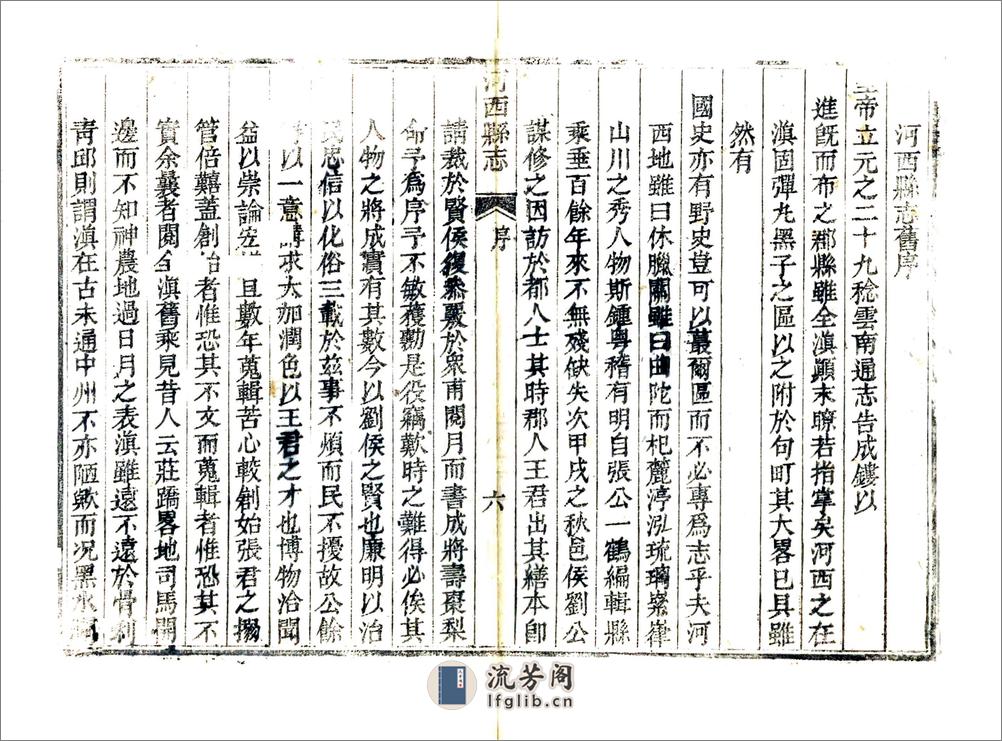 河西縣志舊序
帝立元之二十九稔雲南通志告成鏤以
進旣而布之郡縣雖全滇顚末暸若指掌矣河西之在
滇固彈丸黑子之區以之附於句町其大畧已具雖
然有
國史亦有野史豈可以蕞爾區而不必專爲志乎夫河
西地雖曰休臘關雖曰曲陀而杞麓渟泓琉璃嶪嵂
山川之秀人物斯鍾粤稽有明自張公一鶴編輯縣
乘垂百餘年來不無殘缺失次甲戌之秋邑侯劉公
謀修之因訪於都人士其時郡人王君出其繕本卽
請裁於賢侯復叅覈於衆甫閱月而書成將壽棗梨
命予爲序予不敏獲勷是役竊歎時之難得必俟其
人物之將成實有其數今以劉侯之賢也廉明以治
民忠信以化俗三載於茲事不煩而民不擾故公餘
以一意講求大加潤色以王君之才也博物洽聞
益以崇論宏 且數年蒐輯苦心較創始張君之搦
管倍囏蓋創始者惟恐其不文而蒐輯者惟恐其不
實余曩者閱全滇舊乘見昔人云莊蹻畧地司馬開
邊而不知神農地過日月之表滇雖遠不遠於骨利
靑邱則謂滇在古未通中州不亦陋歟而况黑水
河西縣志
序
六
流芳阁
lfglib.cn